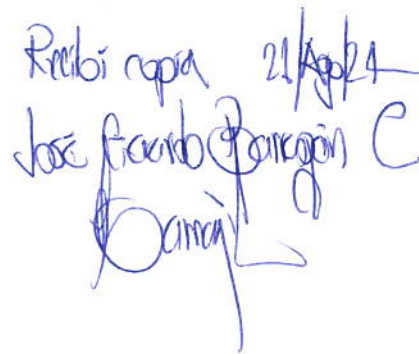 Recibi copia 21/Ago/21
José Gerardo Barragán C